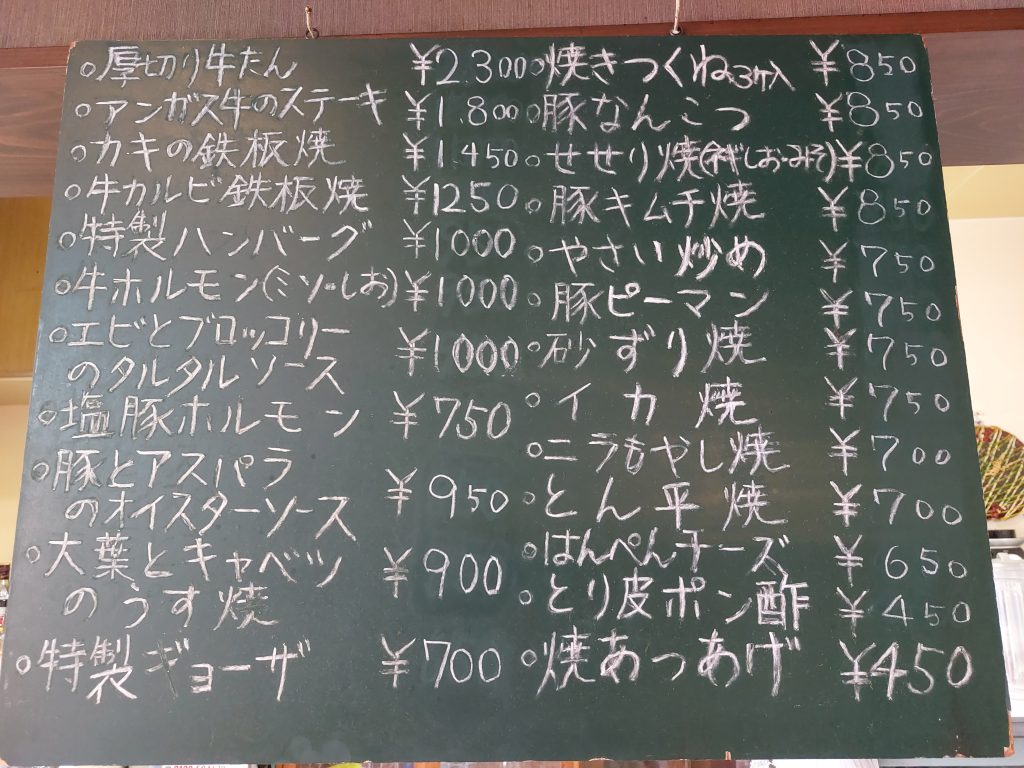 ○厚切り牛たん ¥2.300
○アンガス牛のステーキ ¥1.800
○カキの鉄板焼 ¥1450
○牛カルビ鉄板焼 ¥1250
○特製ハンバーグ ¥1000
○牛ホルモン(ミソ・しお) ¥1000
○エビとブロッコリー
のタルタルソース ¥1000
○塩豚ホルモン ¥750
○豚とアスパラ
のオイスターソース ¥950
○大葉とキャベツ
のうす焼 ¥900
○特製ギョーザ ¥700
○焼きつくね3ケ入 ¥850
○豚なんこつ ¥850
○せせり焼(ネギしお・みそ) ¥850
○豚キムチ焼 ¥850
○やさい炒め ¥750
○豚ピーマン ¥750
○砂ずり焼 ¥750
○イカ焼 ¥750
○ニラもやし焼 ¥700
○とん平焼 ¥700
○はんぺんチーズ ¥650
○とり皮ポン酢 ¥450
○焼あつあげ ¥450